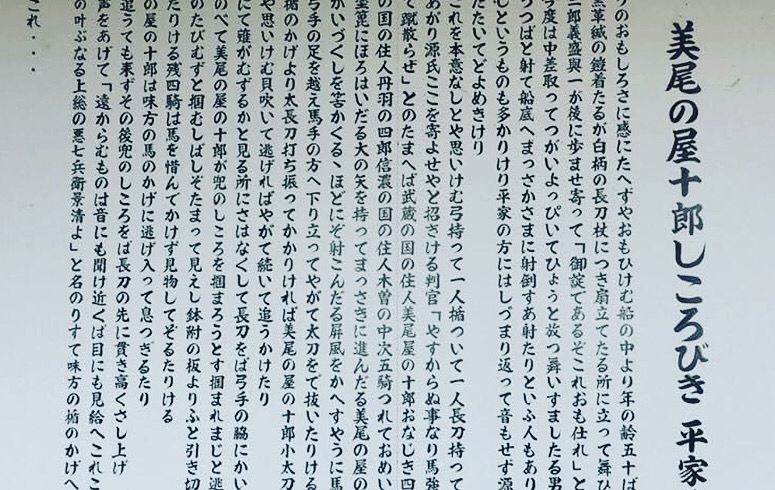 美尾の屋十郎しころびき 平家
りのおもしろさに感にたへずやおもひけむ船の中より年の齢五十ば
黒革縅の鎧着たるが白柄の長刀杖につき扇立てたる所に立って舞ひ
三郎義盛與一が後に歩ませ寄って「御諚であるぞこれおも仕れ」と
今度は中差取ってつがいよっぴいてひょうと放つ舞いすましたる男
うつばと射て船底へまっさかさまに射倒すあ射たりといふ人もあり
むというものも多かりけり平家の方にはしづまり返って音もせず源
たたいてどよめきけり
これを本意なしとや思いけむ弓持って一人楯ついて一人長刀持って
あがり源氏ここを寄よせやと招さける判官「やすからぬ事なり馬強
て蹴散らせ」とのたまへば武蔵の国の住人美尾屋の十郎おなじき四
の国の住人丹羽の四郎信濃の国の住人木曽の中次五騎つれておめい
塗箆にほろはいだる大の矢を持ってまっさきに進んだる美尾の屋の
がいづくしを筈かくるゝほどにぞ射こんだる屏風をかへすやうに馬
弓手の足を越え馬手の方へ下り立ってやがて太刀をで抜いたりける
楯のかげより太長刀打ち振ってかかりければ美尾の屋の十郎小太刀
や思いけむ貝吹いて逃げればやがて続いて追うかけたり
にて薙がむずるかと見る所にさはなくして長刀をば弓手の脇にかい
のべて美尾の屋の十郎が兜のしころを掴まろうとす掴まれまじと逃
のたびむずと掴むしばしぞたまって見えし鉢附の板よりふと引き切
たりける残四騎は馬を惜んでかけず見物してぞるたりける
の屋の十郎は味方の馬のかげに逃げ入って息つぎるたり
追うても来ずその後兜のしころをば長刀の先に貫き高くさし上げ
声をあげて「遠からむものは音にも聞け近くば目にも見給へこれこ
の叶ぶなる上総の悪七兵衛景清よ」と名のりすて味方の楯のかげへ
これ・・・